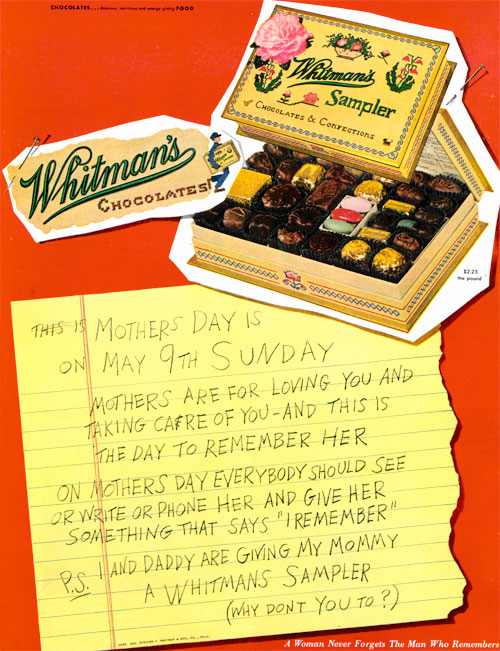 CHOCOLATES... delicious, nutritious and energy-giving FOOD
Whitman's
Sampler
CHOCOLATES & CONFECTIONS
Whitman's
CHOCOLATES
$2.25
the pound
THIS IS MOTHERS DAY IS
ON MAY 9TH SUNDAY
MOTHERS ARE FOR LOVING YOU AND
TAKING CARE OF YOU-AND THIS IS
THE DAY TO REMEMBER HER
ON MOTHERS DAY EVERYBODY SHOULD SEE
OR WRITE OR PHONE HER AND GIVE HER
SOMETHING THAT SAYS "I REMEMBER"
P.S. I AND DADDY ARE GIVING MY MOMMY
A WHITMANS SAMPLER
(WHY DONT YOU TO?)
A Woman Never Forgets The Man Who Remembers